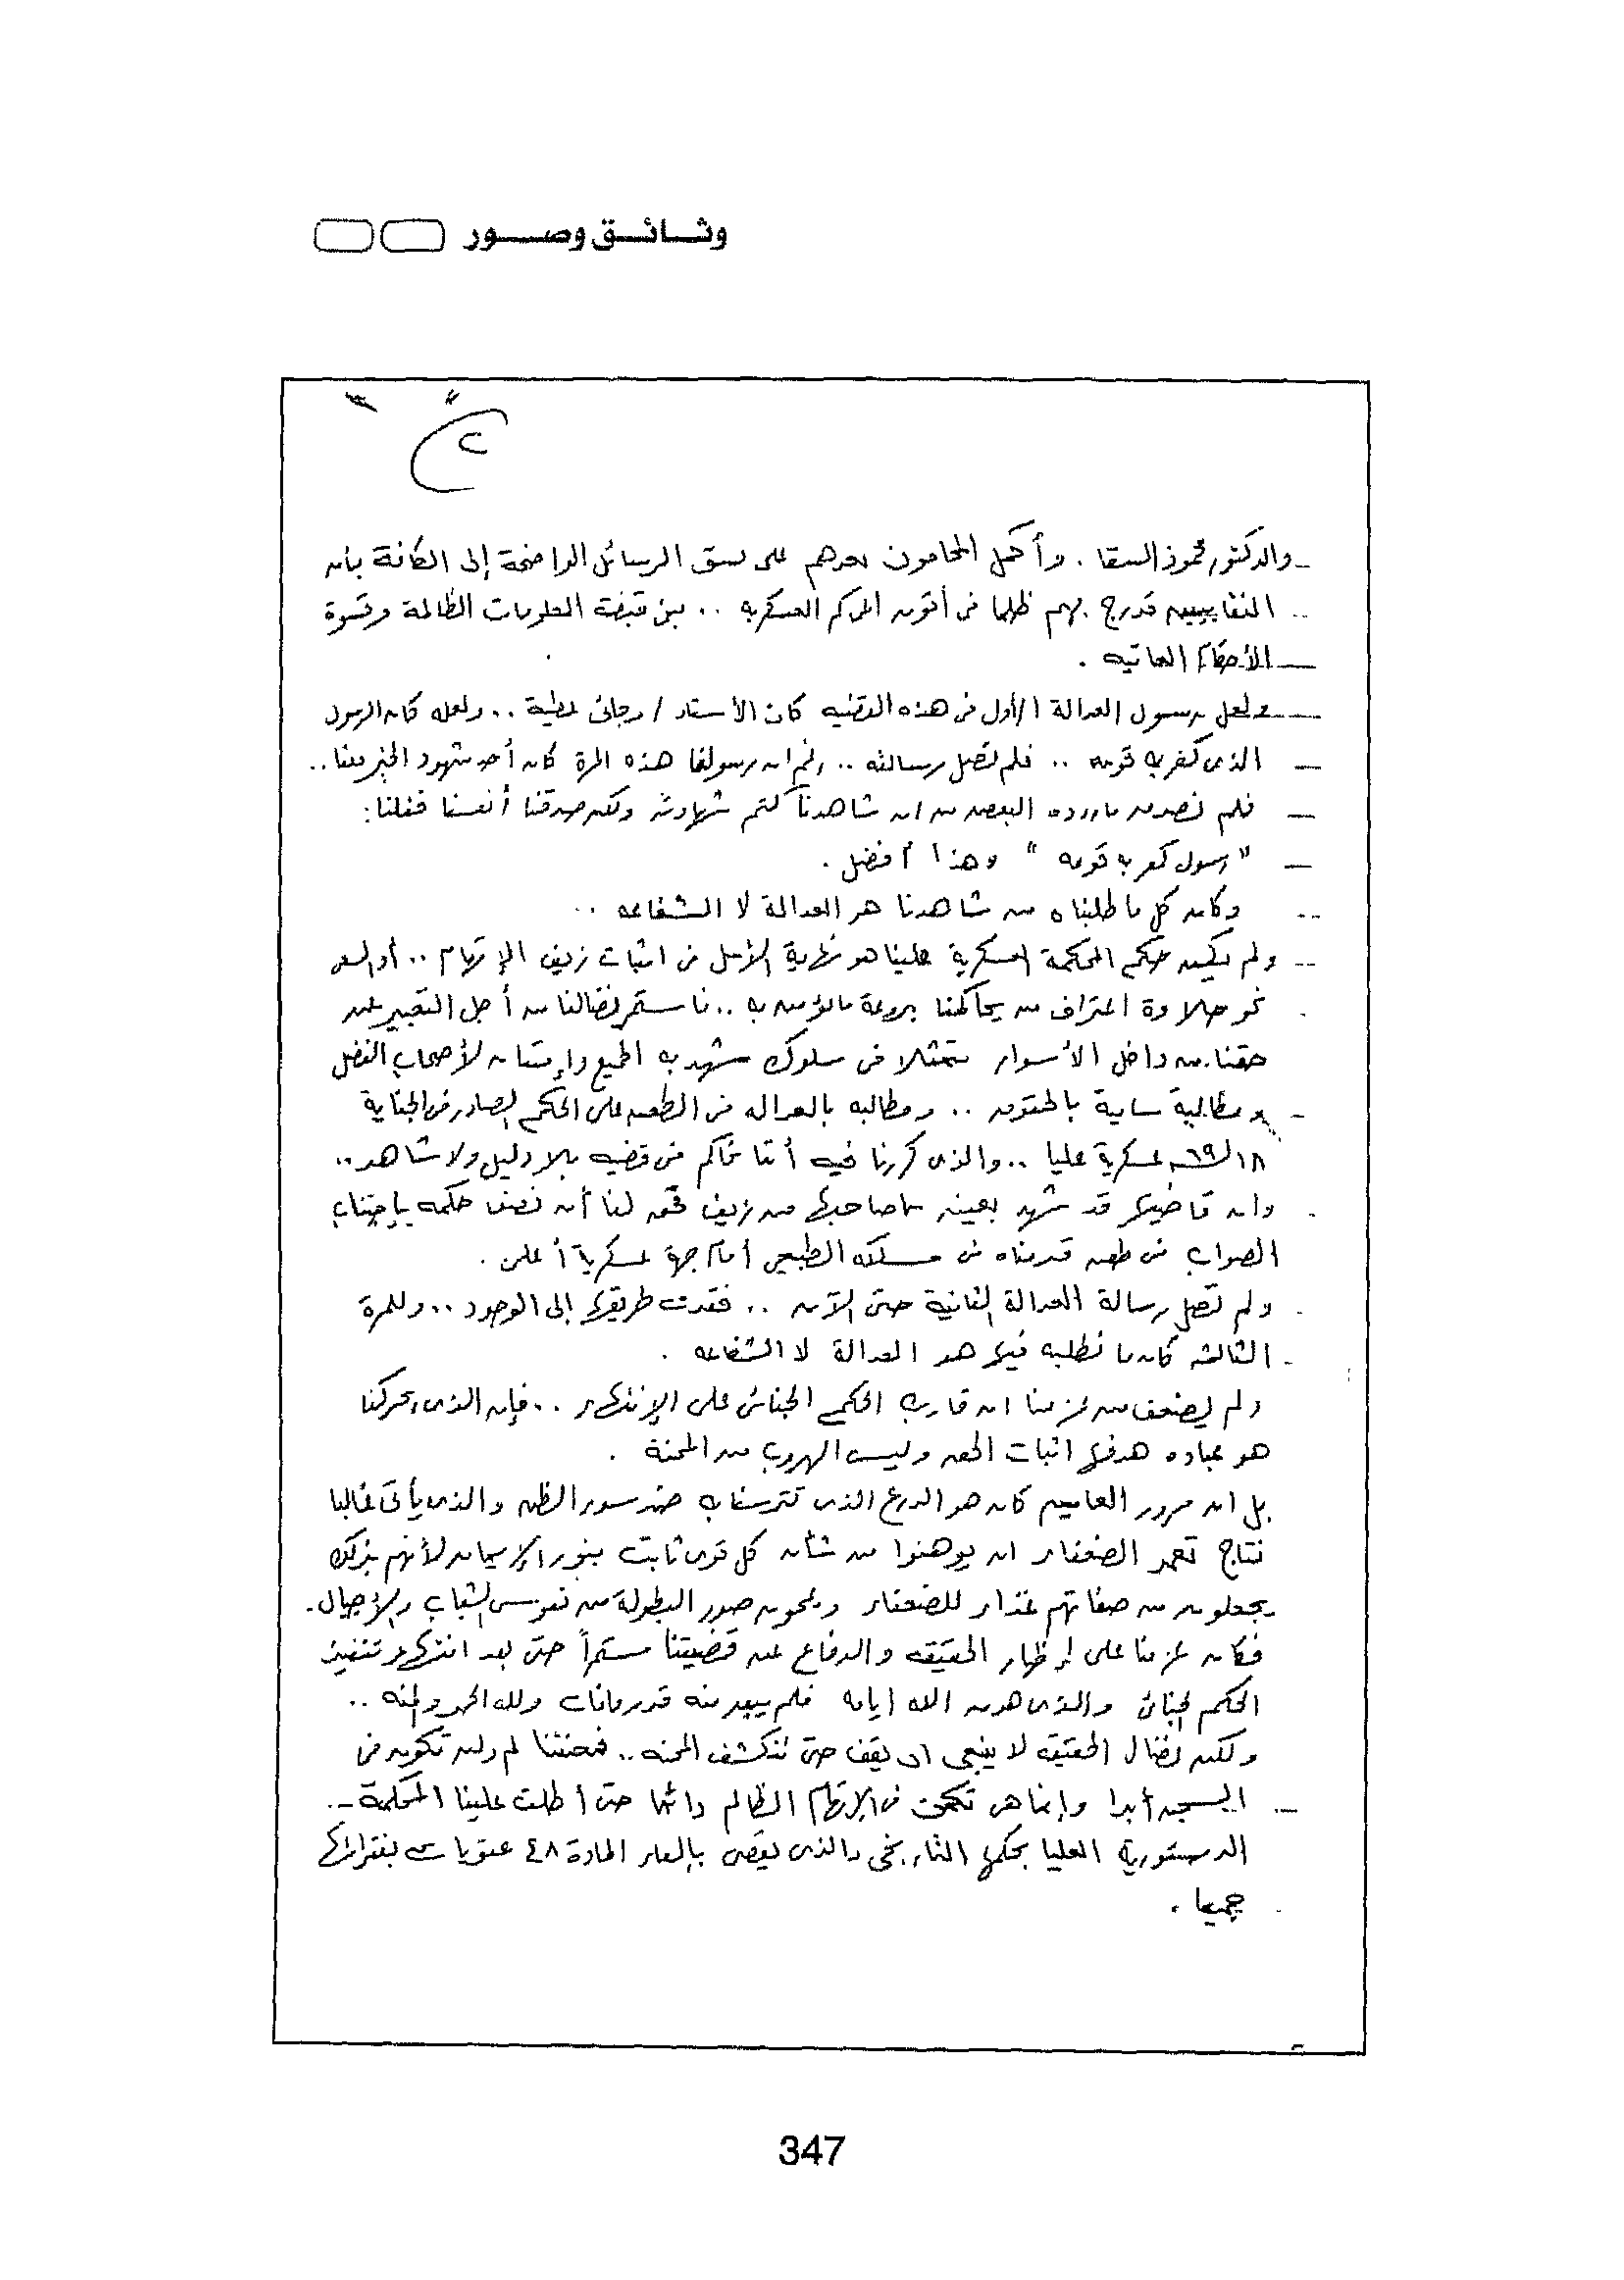 وثائق وصور
٢
والدكتور محمود السقا . وأكمل المحامون بعدهم على نسق الرسائل الواضحة إلى الكافة بأن
النقابيين قد زج بهم ظلما فى أتون المحاكم العسكرية .. بين قبضة المعلومات الظالمة وقسوة
الأحكام العاتيه .
ولعل رسول العدالة الأول فى هذه القضيه كان الأستاذ / رجائى عطية .. ولعله كان الرسول
الذى كفر به قومه .. فلم تصل رسالته .. رغم ان رسولنا هذه المرة كان أحد شهود الخبر معنا ..
فلم نصدق ما ردده البعض من ان شاهدنا كتم شهادته ولكن صدقنا أنفسنا فقلنا :
" رسول كفر به قومه " وهذا أفضل .
وكان كل ما طلبناه من شاهدنا هو العدالة لا الشفاعه ..
ولم يكن حكم المحكمة العسكرية علينا هو نهاية الأمل فى اثبات زيف الإتهام .. أو السعى
نحو حلاوة اعتراف من يحاكمنا بروعة ما نؤمن به .. فاستمر نضالنا من أجل التعبير عن
حقنا من داخل الأسوار متمثلا فى سلوك شهد به الجميع وإمتنان لأصحاب الفضل
ومطالبة سامية بالحقوق .. ومطالبه بالعداله فى الطعن على الحكم الصادر فى الجناية
١٨ لـ ٩٩ عسكرية عليا .. والذى كررنا فيه أننا نحاكم فى قضيه بلا دليل ولا شاهد ..
وان قاضيكم قد شهد بعينه ما صاحبها من زيف فحق لنا أن نصف حكمه بإجتناب
الصواب فى طعن قدمناه فى مسلكه الطبيعى أمام جهة عسكرية أعلى .
ولم تصل رسالة العدالة الثانية حتى الآن .. ففقدت طريقها إلى الوجود .. وللمرة
الثالثه كان ما نطلبه فيكم هو العدالة لا الشفاعه .
ولم يضعف من عزمنا ان قارب الحكم الجنائى على الإنتهاء .. فإن الذى يحركنا
هو عباده هدفها اثبات الحق وليس الهروب من المحنة .
بل ان مرور العامين كان هو الدرع الذى تترسنا به ضد سوء الظن والذى يأتى غالبا
نتاج تعمد الضعفاء ان يوهنوا من شأن كل قوى ثابت بنور الإيمان لأنهم بذلك
يجعلون من صفاتهم غذاء للضعفاء ويمحون صور البطولة من نفوس الشباب والأجيال .
فكان عزمنا على إظهار الحقيقه والدفاع عن قضيتنا مستمراً حتى بعد انتهاء تنفيذ
الحكم الجنائى والذى هون الله ايامه فلم يبق منه قدر ما فات ولله الحمد والمنه ..
ولكن نضال الحقيقه لا ينبغى ان يقف حتى تنكشف المحنه .. فمحنتنا لم ولن تكون فى
السجن أبدا وإنما هى تكمن فى الإتهام الظالم دائما حتى أطلت علينا المحكمة
الدستورية العليا بحكمها التاريخى والذى يقضى بإلغاء المادة ٤٨ عقوبات بفقراتها
جميعا .
347